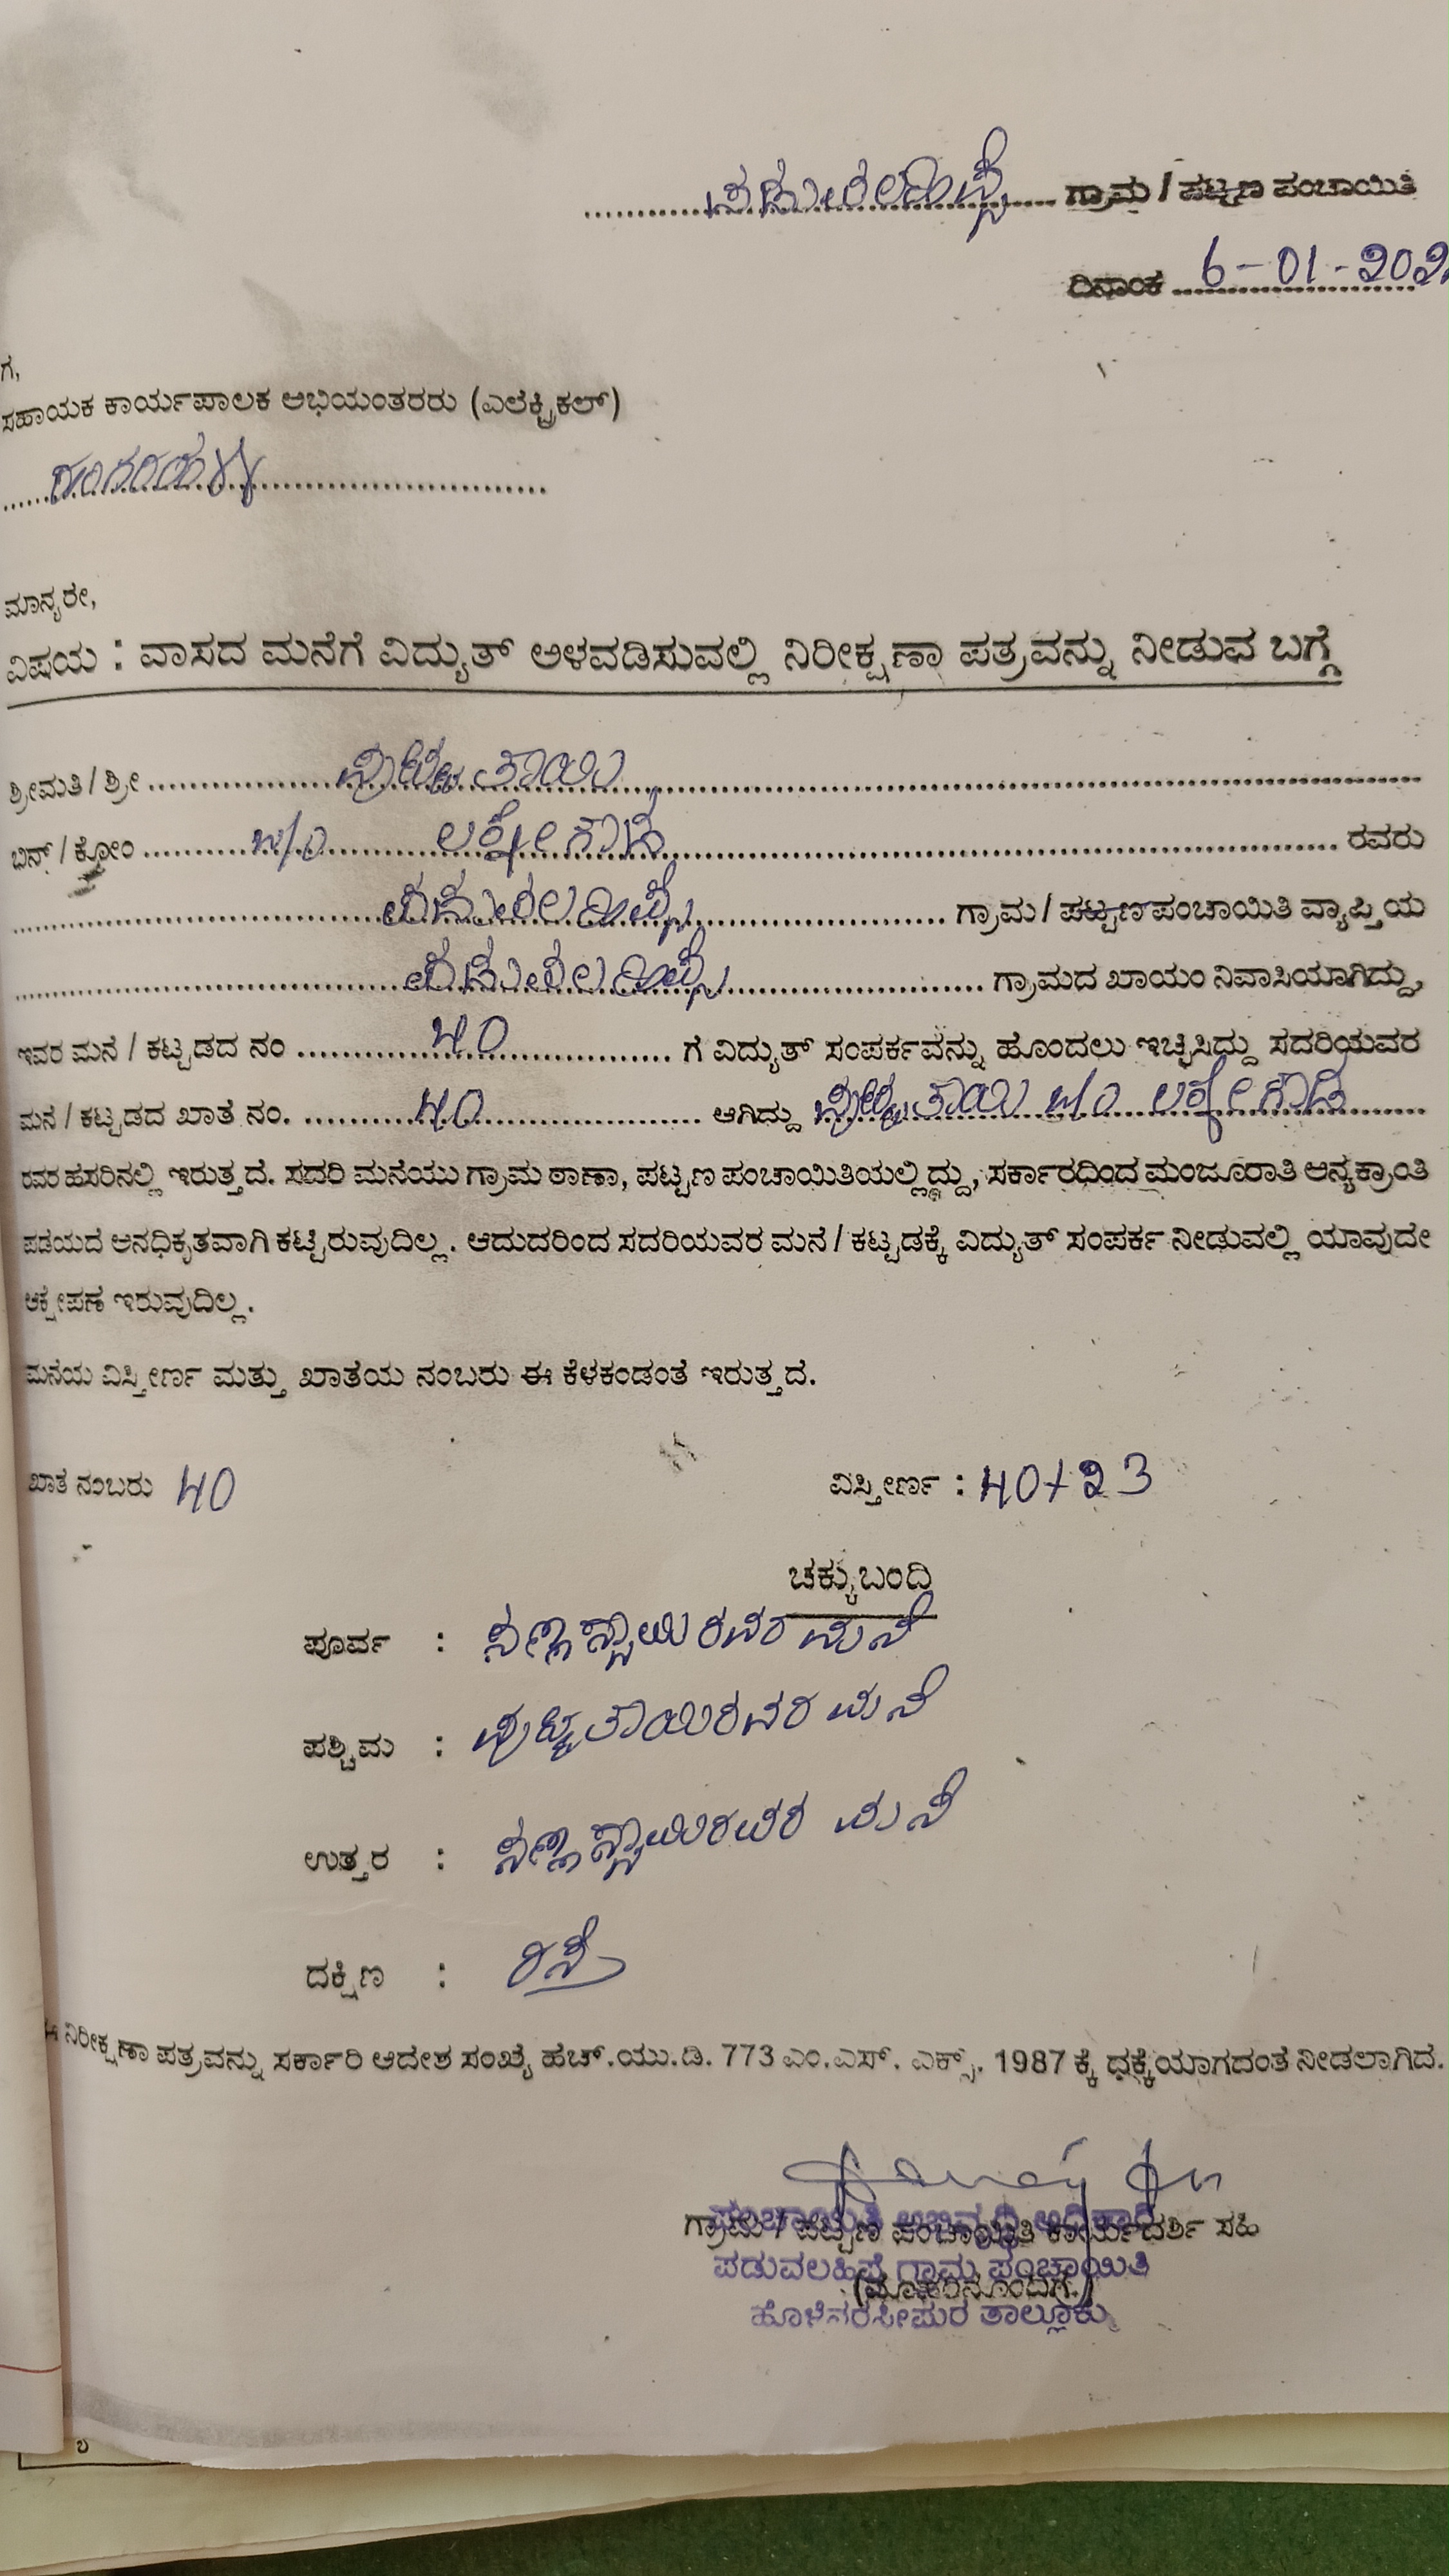 ಪಡುವಲಹಿಪ್ಪೆ ಗ್ರಾಮ / ಪಟ್ಟಣ ಪಂಚಾಯಿತಿ
ದಿನಾಂಕ 6-01-202
ಗೆ,
ಸಹಾಯಕ ಕಾರ್ಯಪಾಲಕ ಅಭಿಯಂತರರು (ಎಲೆಕ್ಟ್ರಿಕಲ್)
ಮಾನ್ಯರೇ,
ವಿಷಯ : ವಾಸದ ಮನೆಗೆ ವಿದ್ಯುತ್ ಅಳವಡಿಸುವಲ್ಲಿ ನಿರೀಕ್ಷಣಾ ಪತ್ರವನ್ನು ನೀಡುವ ಬಗ್ಗೆ
ಶ್ರೀಮತಿ / ಶ್ರೀ ಪುಟ್ಟತಾಯಿ
ಬಿನ್ / ಕ್ರೋಂ w/o ಲಕ್ಕೇಗೌಡ ರವರು
ಪಡುವಲಹಿಪ್ಪೆ ಗ್ರಾಮ / ಪಟ್ಟಣ ಪಂಚಾಯಿತಿ ವ್ಯಾಪ್ತಿಯ
ಪಡುವಲಹಿಪ್ಪೆ ಗ್ರಾಮದ ಖಾಯಂ ನಿವಾಸಿಯಾಗಿದ್ದು,
ಇವರ ಮನೆ / ಕಟ್ಟಡದ ನಂ 40 ಗೆ ವಿದ್ಯುತ್ ಸಂಪರ್ಕವನ್ನು ಹೊಂದಲು ಇಚ್ಛಿಸಿದ್ದು ಸದರಿಯವರ
ಮನೆ / ಕಟ್ಟಡದ ಖಾತೆ ನಂ. 40 ಆಗಿದ್ದು ಪುಟ್ಟತಾಯಿ w/o ಲಕ್ಕೇಗೌಡ
ರವರ ಹೆಸರಿನಲ್ಲಿ ಇರುತ್ತದೆ. ಸದರಿ ಮನೆಯು ಗ್ರಾಮ ಠಾಣಾ, ಪಟ್ಟಣ ಪಂಚಾಯಿತಿಯಲ್ಲಿದ್ದು, ಸರ್ಕಾರಧಿಂದ ಮಂಜೂರಾತಿ ಅನ್ಯಕ್ರಾಂತಿ
ಪಡೆಯದೆ ಅನಧಿಕೃತವಾಗಿ ಕಟ್ಟಿರುವುದಿಲ್ಲ. ಆದುದರಿಂದ ಸದರಿಯವರ ಮನೆ / ಕಟ್ಟಡಕ್ಕೆ ವಿದ್ಯುತ್ ಸಂಪರ್ಕ ನೀಡುವಲ್ಲಿ ಯಾವುದೇ
ಆಕ್ಷೇಪಣೆ ಇರುವುದಿಲ್ಲ.
ಮನೆಯ ವಿಸ್ತೀರ್ಣ ಮತ್ತು ಖಾತೆಯ ನಂಬರು ಈ ಕೆಳಕಂಡಂತೆ ಇರುತ್ತದೆ.
ಖಾತೆ ನಂಬರು 40 ವಿಸ್ತೀರ್ಣ : 40x23
ಚಕ್ಕುಬಂದಿ
ಪೂರ್ವ : ಸಣ್ಣಸ್ವಾಮಿರವರ ಮನೆ
ಪಶ್ಚಿಮ : ಪುಟ್ಟತಾಯಿರವರ ಮನೆ
ಉತ್ತರ : ಸಣ್ಣಸ್ವಾಮಿರವರ ಮನೆ
ದಕ್ಷಿಣ : ರಸ್ತೆ
ಈ ನಿರೀಕ್ಷಣಾ ಪತ್ರವನ್ನು ಸರ್ಕಾರಿ ಆದೇಶ ಸಂಖ್ಯೆ ಹೆಚ್.ಯು.ಡಿ. 773 ಎಂ.ಎಸ್. ಎಕ್ಸ್. 1987 ಕ್ಕೆ ಧಕ್ಕೆಯಾಗದಂತೆ ನೀಡಲಾಗಿದೆ.
ಪಂಚಾಯಿತಿ ಅಭಿವೃದ್ಧಿ ಅಧಿಕಾರಿ
ಗ್ರಾಮ / ಪಟ್ಟಣ ಪಂಚಾಯಿತಿ ಕಾರ್ಯದರ್ಶಿ ಸಹಿ
ಪಡುವಲಹಿಪ್ಪೆ ಗ್ರಾಮ ಪಂಚಾಯಿತಿ
(ಮೊಹರಿನೊಂದಿಗೆ.)
ಹೊಳೆನರಸೀಪುರ ತಾಲ್ಲೂಕು